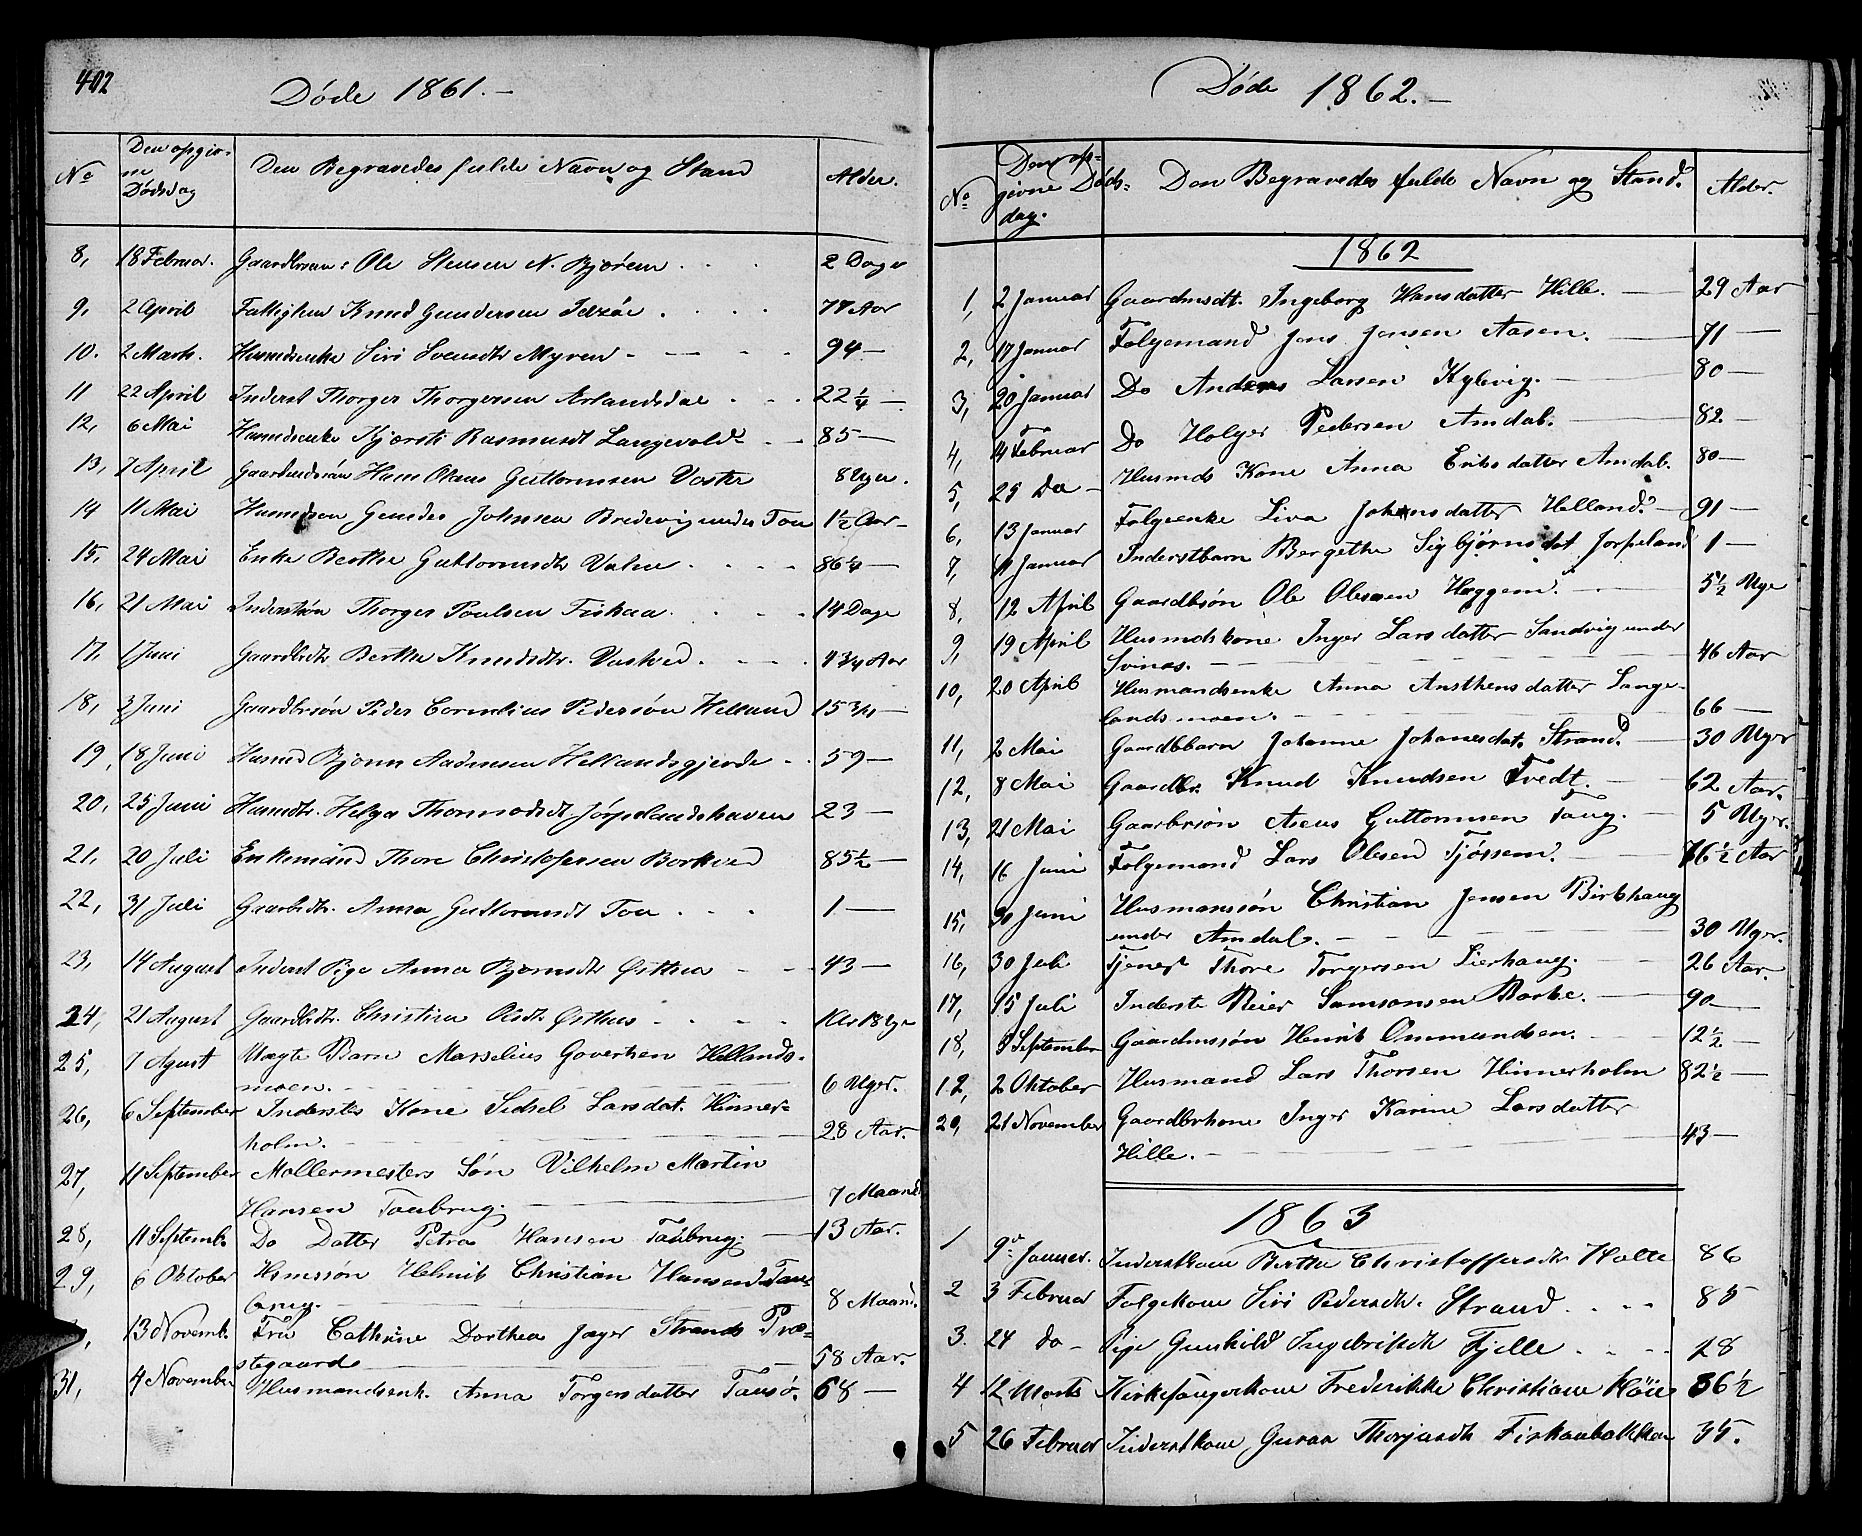 402
Døde 1861.-
No Den opgivne Dødsdag Den Begravedes fulde Navn og Stand Alder.
8, 18 Februar. Ole N. Bjørem 2 Dage
9, 2 April Knud Gundersen 77 Aar
10. 2 Marts. Siri Svendsdtr Myren 94 -
11 22 April Inderst Thorger Thorgersen Erlandsdal 22 1/4 -
12, 6 Mai Rasmusdt Langevold 85 -
13, 7 April Hans Olaus Guttormsen Vostr 8 Uger.
14 11 Mai Gunder Johnsen Bredevig under Tou 1 1/2 Aar -
15, 24 Mai Enke Berthe Guttormsdtr Valu 86 1/4 -
16, 21 Mai Thorger Poulsen Fiskaa 14 Dage
17, 1 Juni Berthe Knudsdtr. 4 3/4 Aar
18, 3 Juni Gaardbrsön Peder Cornelius Pedersön Helland 15 3/4 -
19, 18 Juni Husmd Bjørn Aadensen Hellandsgjerde 59 -
20, 25 Juni Helga Thormodsdt Jörpelandshaven 23 -
21, 20 Juli Enkemand Thore Christofersen Borkved 85 1/2 -
22, 31 Juli Anna Guttormsdt Tou 1 -
23, 14 August Inderst Pige Anna Bjørnsdtr Østhus 43 -
24, 21 August Gaardbdtr. Christina Østhus
25, 7 Agust Uægte Barn Marselius Govertsen Hellands-
moen. 6 Uger.
26, 6 September Inderstes Kone Sidsel Larsdat. Hinner-
holm. 28 Aar.
27, 11 September Møllermesters Søn Vilhelm Martin
Hansen Toubrug. 7 Maaned
28, 11 Septemb. Do Datter Petra Hansen Toubrug. 13 Aar.
29, 6 Oktober Husmssøn Helmik Christian Hansen Tou-
brug. 8 Maand.
13 Novemb. Fru Cathrine Dorthea Jæger Strands Præ-
stegaard 58 Aar.
31, 4 November Husmandsenk. Anna Torgersdatter Tausø. 68 -
Døde 1862.-
No Den opgivne Døds-dag. Den Begravedes fulde Navn og Stand. Alder.
1862
1, 2 Januar Gaardmsdt. Ingeborg Hansdatter Hille. 29 Aar
2, 17 Januar Folgemand Jens Jensen Aasen. 71 -
3, 20 Januar Do Anders Larsen Kylevig. 80 -
4, 4 Februar Do Holger Pedersen Amdal. 82 -
5, 25 Do - Husmds Kone Anna Eriksdatter Amdal. 80 -
6, 13 Januar Folgeenke Liva Johansdatter Helland. 91 -
7, 11 Januar Inderstbarn Bergethe Sigbjørnsdat Jørpeland 1 -
8, 12 April Gaardbrsøn Ole Olesen Heggem. 5 1/2 Uge
9, 19 April Husmdskone Inger Larsdatter Sandvig under
Svinas. 46 Aar
10, 20 April Husmandsenke Anna Ansthensdatter Lange-
landsmoen. 66 -
11, 2 Mai Gaardbbarn Johanne Johanesdat. Strand. 30 Uger
12, 8 Mai Gaardbr. Knud Knudsen Tvedt. 62 Aar.
13, 21 Mai Gaarbrsøn Guttormsen Taug. 5 Uger.
14, 16 Juni Folgemand Lars Olesen Tjøssem. 76 1/2 Aar
15, 30 Juni Husmanssøn Christian Jensen Birkhaug
under Amdal. 30 Uger.
16, 30 Juli Tjener Thore Torgersen Lierhaug. 26 Aar.
17, 15 Juli Inderste Reier Samsonsen Barke. 90 -
18, 8 September Gaardmssøn Henrik Ommundsen. 12 1/2 -
12, 2 Oktober Husmand Lars Thorsen Hinnerholm 82 1/2 -
20, 21 November Gaardbrkone Inger Karine Larsdatter
Hille. 43 -
1863
1 9de Januar. Inderstkone Berthe Christoffersdtr Holte 86
2 3 Februar Folgekone Siri Pedersdtr. Strand 85
3. 24 do - Pige Gunhild Ingebritsdt Fjelle 28
4 12 Marts Kirkesangerkone Frederikke Christiane 36 1/2
5 26 Februar Inderstkone Guroa Fiskaabakken 35.